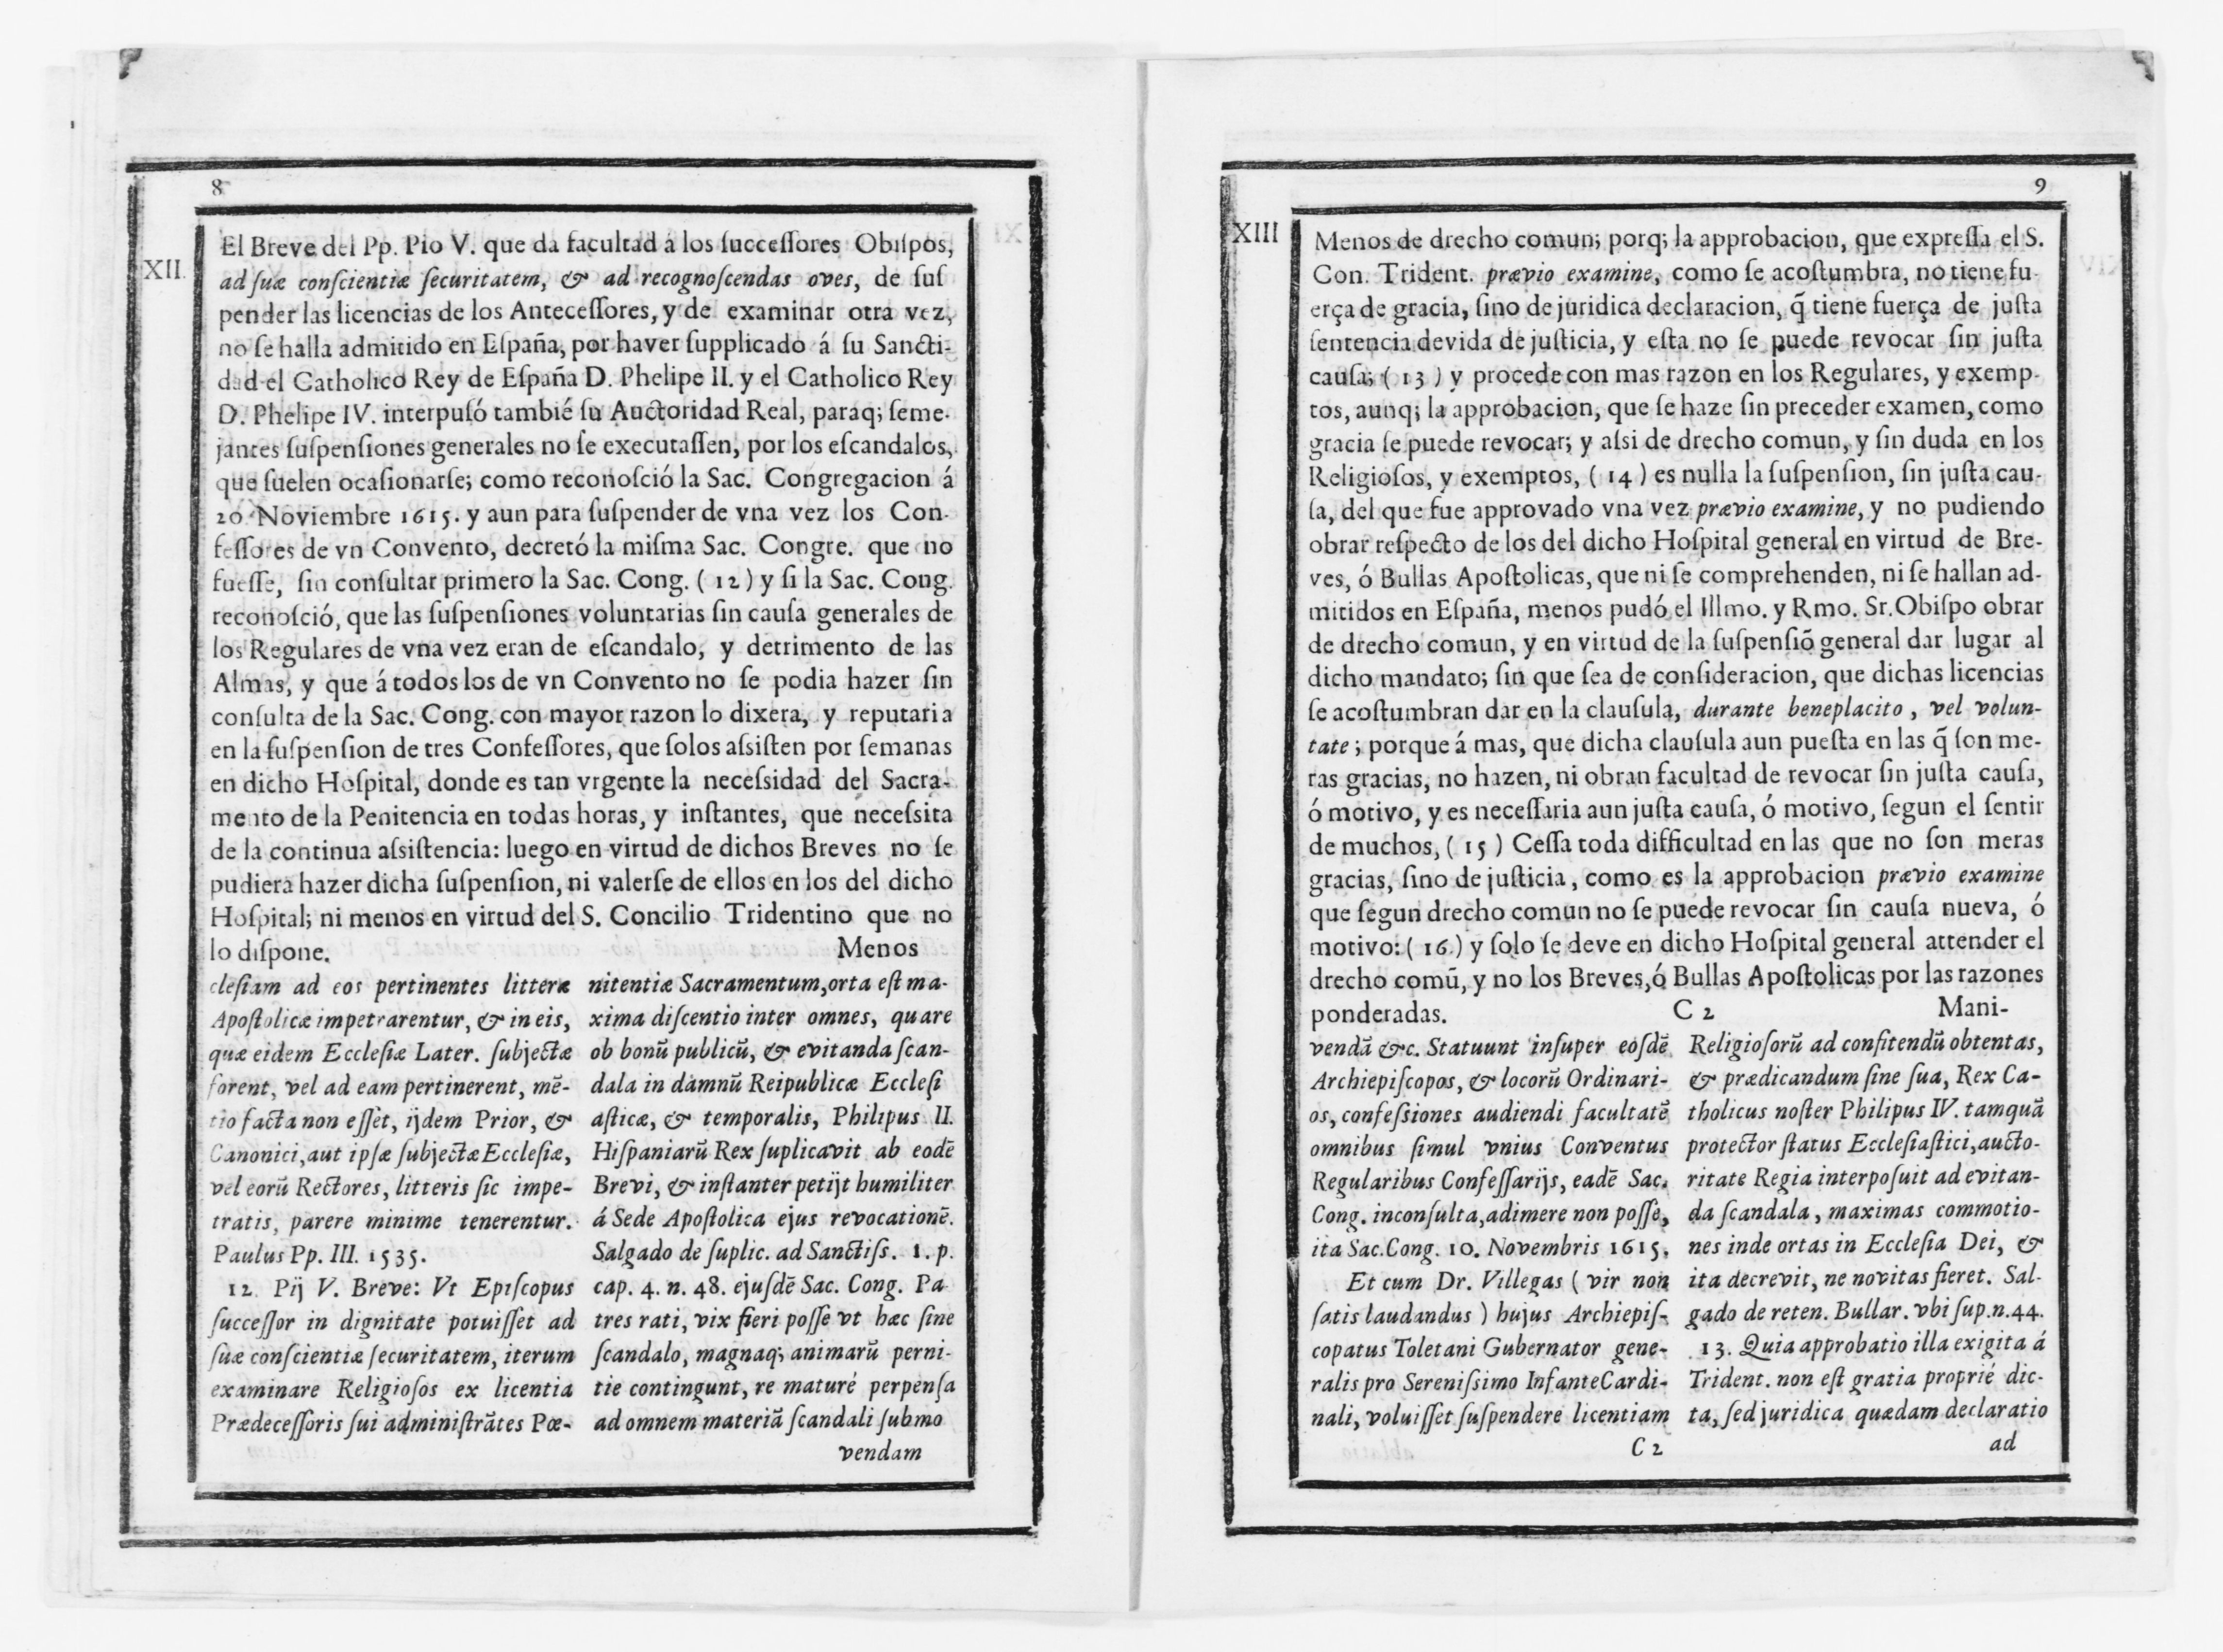 8
XII.
El Breve del Pp. Pio V. que da facultad á los ſucceſſores Obiſpos,
ad ſuæ conſcientiæ ſecuritatem, & ad recognoſcendas oves, de ſuſ
pender las licencias de los Anteceſſores, y de examinar otra vez,
no ſe halla admitido en Eſpaña, por haver ſupplicado á ſu Sancti-
dad el Catholico Rey de Eſpaña D. Phelipe II. y el Catholico Rey
D. Phelipe IV. interpuſó tambié ſu Auctoridad Real, paraq; ſeme-
jantes ſuſpenſiones generales no ſe executaſſen, por los eſcandalos,
que ſuelen ocaſionarſe; como reconoſció la Sac. Congregacion á
20. Noviembre 1615. y aun para ſuſpender de vna vez los Con-
feſſores de vn Convento, decretó la miſma Sac. Congre. que no
fueſſe, ſin conſultar primero la Sac. Cong. ( 12 ) y ſi la Sac. Cong.
reconoſció, que las ſuſpenſiones voluntarias ſin cauſa generales de
los Regulares de vna vez eran de eſcandalo, y detrimento de las
Almas, y que á todos los de vn Convento no ſe podia hazer ſin
conſulta de la Sac. Cong. con mayor razon lo dixera, y reputaria
en la ſuſpenſion de tres Confeſſores, que ſolos aſsiſten por ſemanas
en dicho Hoſpital, donde es tan vrgente la neceſsidad del Sacra-
mento de la Penitencia en todas horas, y inſtantes, que neceſsita
de la continua aſsiſtencia: luego en virtud de dichos Breves no ſe
pudiera hazer dicha ſuſpenſion, ni valerſe de ellos en los del dicho
Hoſpital; ni menos en virtud del S. Concilio Tridentino que no
lo diſpone. Menos
cleſiam ad eos pertinentes litteræ
Apoſtolicæ impetrarentur, & in eis,
quæ eidem Eccleſiæ Later. ſubjectæ
forent, vel ad eam pertinerent, mē-
tio facta non eſſet, ijdem Prior, &
Canonici, aut ipſæ ſubjectæ Eccleſiæ,
vel eorū Rectores, litteris ſic impe-
tratis, parere minime tenerentur.
Paulus Pp. III. 1535.
12. Pij V. Breve: Vt Epiſcopus
ſucceſſor in dignitate potuiſſet ad
ſuæ conſcientiæ ſecuritatem, iterum
examinare Religioſos ex licentia
Prædeceſſoris ſui adminiſtrātes Pœ-
nitentiæ Sacramentum, orta eſt ma-
xima diſcentio inter omnes, quare
ob bonū publicū, & evitanda ſcan-
dala in damnū Reipublicæ Eccleſi
aſticæ, & temporalis, Philipus II.
Hiſpaniarū Rex ſuplicavit ab eodē
Brevi, & inſtanter petijt humiliter
á Sede Apoſtolica ejus revocationē.
Salgado de ſuplic. ad Sanctiſs. 1. p.
cap. 4. n. 48. ejuſdē Sac. Cong. Pa
tres rati, vix fieri poſſe vt hæc ſine
ſcandalo, magnaq; animarū perni-
tie contingunt, re maturé perpenſa
ad omnem materiā ſcandali ſubmo
vendam
9
XIII
Menos de drecho comun; porq; la approbacion, que expreſſa el S.
Con. Trident. prævio examine, como ſe acoſtumbra, no tiene fu-
erça de gracia, ſino de juridica declaracion, q̃ tiene fuerça de juſta
ſentencia devida de juſticia, y eſta no ſe puede revocar ſin juſta
cauſa; ( 13 ) y procede con mas razon en los Regulares, y exemp-
tos, aunq; la approbacion, que ſe haze ſin preceder examen, como
gracia ſe puede revocar; y aſsi de drecho comun, y ſin duda en los
Religioſos, y exemptos, ( 14 ) es nulla la ſuſpenſion, ſin juſta cau-
ſa, del que fue approvado vna vez prævio examine, y no pudiendo
obrar reſpecto de los del dicho Hoſpital general en virtud de Bre-
ves, ó Bullas Apoſtolicas, que ni ſe comprehenden, ni ſe hallan ad-
mitidos en Eſpaña, menos pudó el Illmo. y Rmo. Sr. Obiſpo obrar
de drecho comun, y en virtud de la ſuſpenſiõ general dar lugar al
dicho mandato; ſin que ſea de conſideracion, que dichas licencias
ſe acoſtumbran dar en la clauſula, durante beneplacito, vel volun-
tate; porque á mas, que dicha clauſula aun pueſta en las q̃ ſon me-
ras gracias, no hazen, ni obran facultad de revocar ſin juſta cauſa,
ó motivo, y es neceſſaria aun juſta cauſa, ó motivo, ſegun el ſentir
de muchos, ( 15 ) Ceſſa toda difficultad en las que no ſon meras
gracias, ſino de juſticia, como es la approbacion prævio examine
que ſegun drecho comun no ſe puede revocar ſin cauſa nueva, ó
motivo: ( 16 ) y ſolo ſe deve en dicho Hoſpital general attender el
drecho comū, y no los Breves, ó Bullas Apoſtolicas por las razones
ponderadas. C 2 Mani-
vendā &c. Statuunt inſuper eoſdē
Archiepiſcopos, & locorū Ordinari-
os, confeſsiones audiendi facultatē
omnibus ſimul vnius Conventus
Regularibus Confeſſarijs, eadē Sac.
Cong. inconſulta, adimere non poſſe,
ita Sac. Cong. 10. Novembris 1615.
Et cum Dr. Villegas ( vir non
ſatis laudandus ) hujus Archiepiſ-
copatus Toletani Gubernator gene-
ralis pro Sereniſsimo Infante Cardi-
nali, voluiſſet ſuſpendere licentiam
C 2
Religioſorū ad confitendū obtentas,
& prædicandum ſine ſua, Rex Ca-
tholicus noſter Philipus IV. tamquā
protector ſtatus Eccleſiaſtici, aucto-
ritate Regia interpoſuit ad evitan-
da ſcandala, maximas commotio-
nes inde ortas in Eccleſia Dei, &
ita decrevit, ne novitas fieret. Sal-
gado de reten. Bullar. vbi ſup. n. 44.
13. Quia approbatio illa exigita á
Trident. non eſt gratia proprié dic-
ta, ſed juridica quædam declaratio
ad